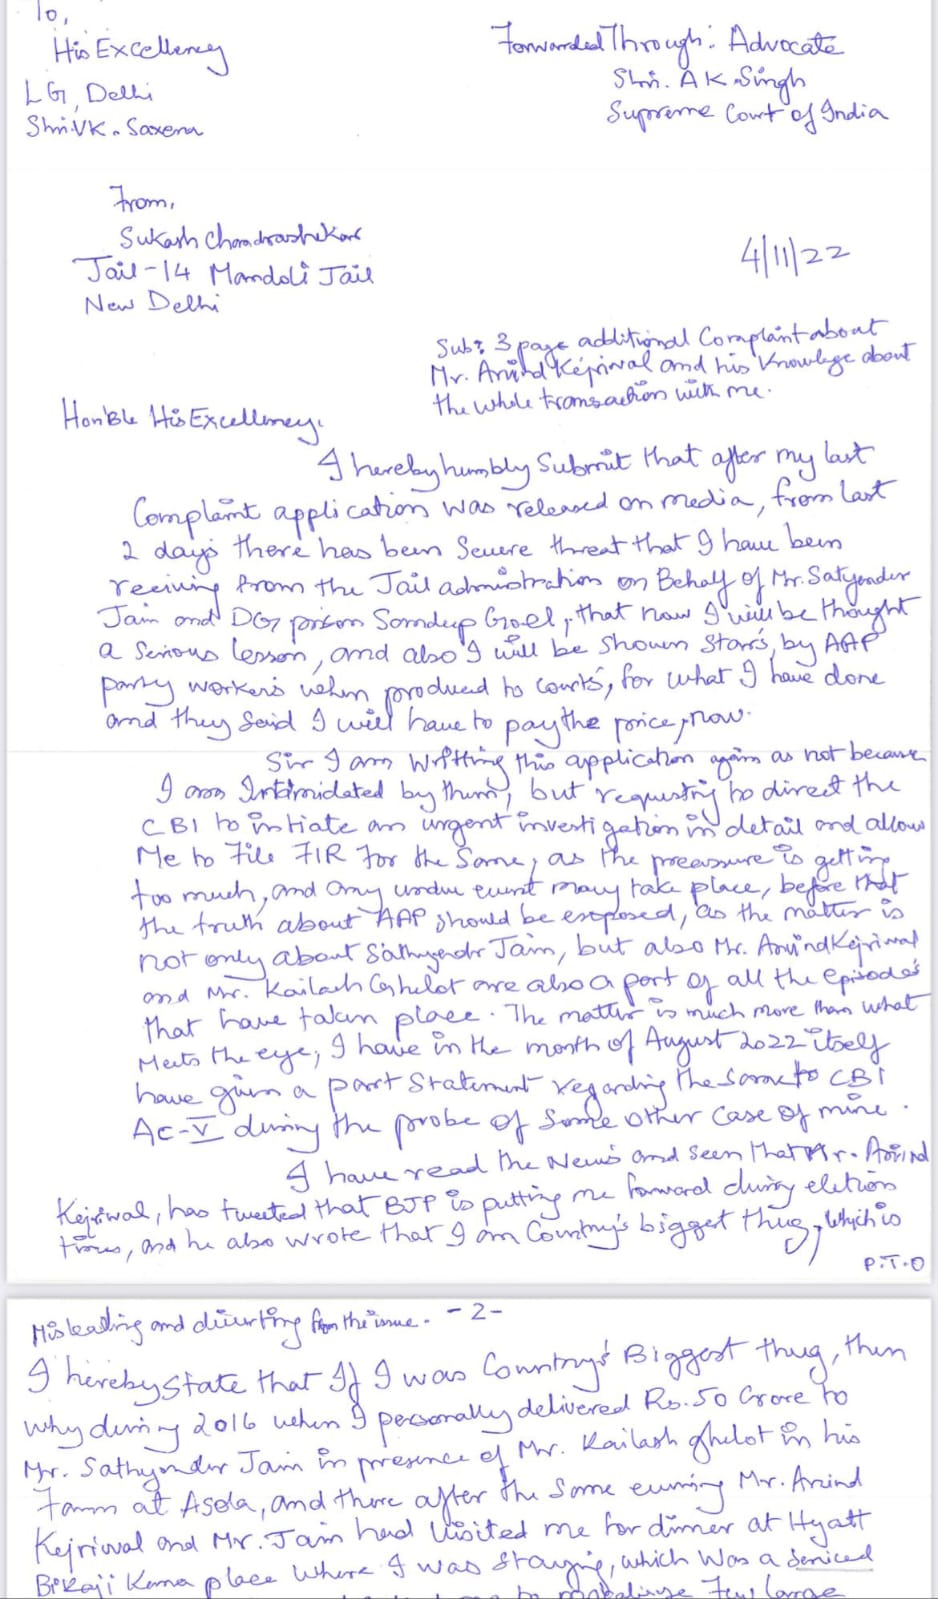 To,
His Excellency
LG, Delhi
Shri.VK. Saxena
Forwarded Through: Advocate
Shri. A K Singh
Supreme Court of India
From,
Sukash Chandrashekar
Jail-14 Mandoli Jail
New Delhi
4/11/22
Sub: 3 page additional Complaint about
Mr. Arvind Kejriwal and his Knowlege about
the whole transaction with me.
Hon'ble His Excellency,
I hereby humbly Submit that after my last
Complaint application was released on media, from last
2 days there has been Severe threat that I have been
receiving from the Jail administration on Behalf of Mr. Satyender
Jain and DG prison Sandeep Goel, that now I will be thought
a Serious lesson, and also I will be Shown Stars, by AAP
party workers when produced to courts, for what I have done
and they Said I will have to pay the price, now.
Sir I am writting this application again as not because
I am Intimidated by them, but requesting to direct the
CBI to intiate an urgent investigation in detail and allow
Me to File FIR For the Same, as the preassure is getting
too much, and any undue event may take place, before that
the truth about AAP should be exposed, as the matter is
not only about Sathyendr Jain, but also Mr. Arvind Kejriwal
and Mr. Kailash Gehelot are also a part of all the episodes
that have taken place. The matter is much more than what
Meets the eye, I have in the month of August 2022 itself
have given a part Statement regarding the same to CBI
AC-V during the probe of Some other Case of mine.
I have read the News and seen that Mr. Arvind
Kejriwal, has tweeted that BJP is putting me forward during elction
times, and he also wrote that I am Country's biggest thug, which is
P.T.O
Misleading and diverting from the issue. -2-
I hereby state that If I was Country's Biggest thug, then
why during 2016 when I personally delivered Rs.50 Crore to
Mr. Sathyender Jain in presence of Mr. Kailash ghelot in his
Farm at Asola, and there after the Same evening Mr. Arvind
Kejriwal and Mr. Jain had visited me for dinner at Hyatt
Bikaji Kama place where I was Staying, which was a Seniced
large